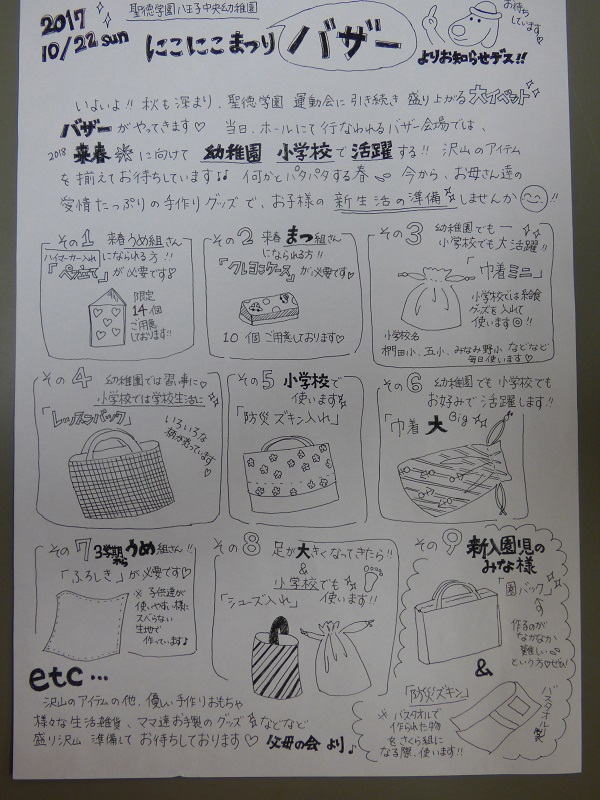 2017
10/22 sun
聖徳学園八王子中央幼稚園
にこにこまつり バザー
お待ちしています♡
よりお知らせデス!!
いよいよ!! 秋も深まり、聖徳学園 運動会に引き続き 盛り上がる大イベント
バザーがやってきます♡ 当日、ホールにて行なわれるバザー会場では、
2018 来春に向けて 幼稚園 小学校で活躍する!! 沢山のアイテム
を揃えてお待ちしています♪ 何かとバタバタする春 今から、お母さん達の
愛情たっぷりの手作りグッズで、お子様の新生活の準備しませんか!!
その1 来春うめ組さん
になられる方!!
ハイマーカー入れ
「ペン立て」が必要です!
限定
14個
ご用意
しております!!
その2 来春 まつ組さん
になられる方!!
「クレヨンケース」が必要です♡
10個 ご用意しております♡
その3 幼稚園でも
小学校でも大活躍!!
「巾着ミニ」
小学校では給食
グッズを入れて
使います◎!!
小学校名
椚田小、五小、みなみ野小 などなど
毎日使います♡
その4 幼稚園では習い事に♡
小学校では学校生活に
「レッスンバック」
いろいろな
柄が揃っています♡
その5 小学校で
使います
「防災ズキン入れ」
その6 幼稚園でも小学校でも
お好みで活躍します!!
「巾着 大 Big」
その7 3学期から うめ組さん!!
「ふろしき」が必要です♡
※子供達が
使いやすい様に
スベらない
生地で
作っています♪
その8 足が大きくなってきたら!!
&
小学校でも
使います!!
「シューズ入れ」
その9 新入園児の
みな様
「園バック」
です
作るのが
なかなか
難しい…
という方♡ぜひ!
&
「防災ズキン」
バスタオル製
※ バスタオルで
作られた物
をさくら組に
なる際、使います!!
etc…
沢山のアイテムの他、優しい手作りおもちゃ
様々な生活雑貨、ママ達お手製のグッズなどなど
盛り沢山 準備してお待ちしております♡ 父母の会 より♪